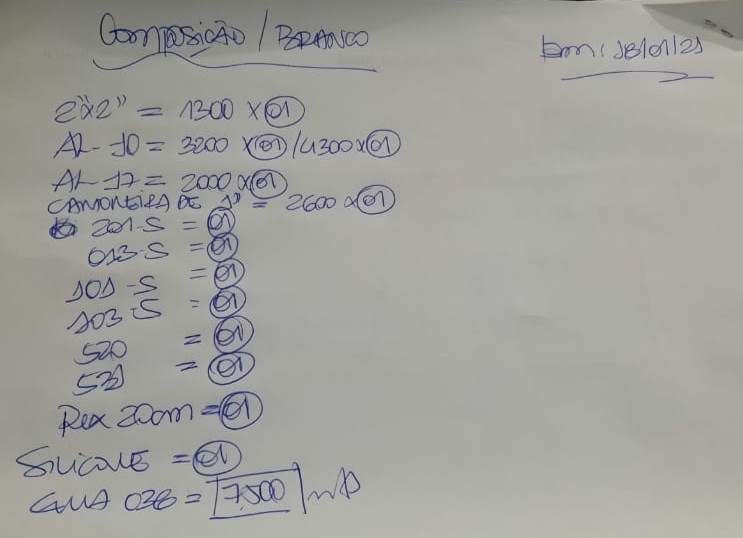 Composição / BRANCO
Em: 18/01/21
2"x2" = 1300 x 01
AL-10 = 3200 x 01 / 4300 x 01
AL-17 = 2000 x 01
CANTONEIRA DE 1" = 2600 x 01
201-S = 01
013-S = 01
101-S = 01
103-S = 01
520 = 01
531 = 01
Rex 20cm = 01
SILICONE = 01
GUIA 038 = 7,500